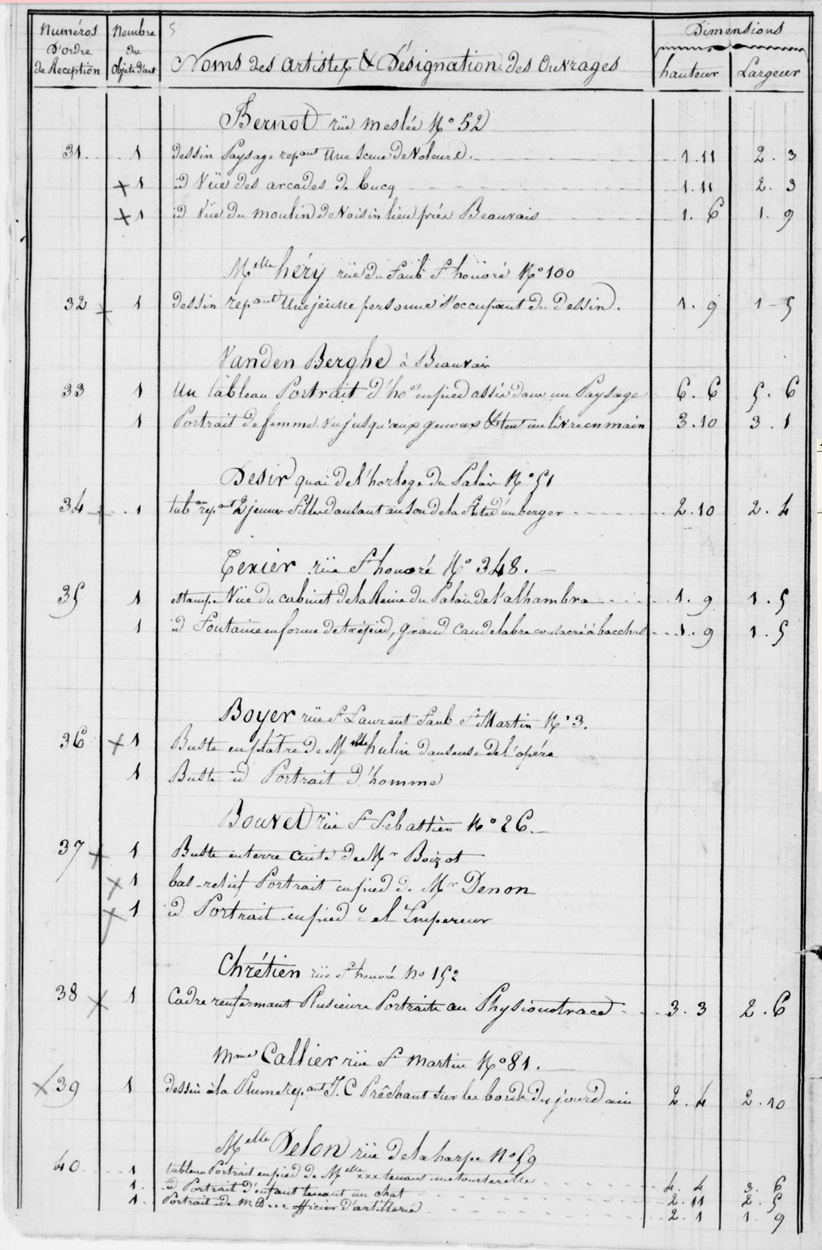 Numéros d'ordre de Réception | Nombre des Objets d'art | 5 Noms des Artistes & Désignation des Ouvrages | Dimensions hauteur | Largeur
Bernot rüe meslée N° 52
31. 1 dessin Paysage rep.ant Une Scene de Voleurs. 1. 11 2. 3
x 1 id Vüe des arcades de Cucq 1. 11 2. 3
x 1 id Vüe du moulin de Voisinlieu près Beauvais 1. 6 1. 9
Melle héry rüe du faub St honoré N° 100
32 x 1 dessin rep.ant Une jeune personne s'occupant du dessin. 1. 9 1 5
Vanden Berghe à Beauvais
33 1 Un tableau Portrait d'ho.e en pied assis dans un Paysage 6. 6 5. 6
1 Portrait de femme vu jusqu'aux genoux tent un livre en main 3. 10 3. 1
Desir quai de l'horloge du Palais N° 51
34 1 tab rep.ant 2 jeunes filles dansant au son de la flute d'un berger 2. 10 2. 4
Texier rüe St honoré N° 348.
35 1 estampe Vüe du cabinet de la Reine du Palais de l'alhambra 1. 9 1. 5
1 id Fontaine en forme de trépied, grand Candelabre consacré à bacchus 1. 9 1. 5
Boyer rüe St Laurent faub St Martin N° 3.
36 x 1 Buste en plâtre de Melle hulin danseuse de l'opéra
1 Buste id Portrait d'homme
Bouvet rüe St Sebastien N° 26.
37 x 1 Buste en terre cuite de Mr Boizot
x 1 bas-relief Portrait en pied de Mr Denon
x 1 id Portrait en pied de l'Empereur
Chrétien rüe St honoré No 152
38 x 1 Cadre renfermant Plusieurs Portraits au Physionotrace 3. 3 2. 6
Mme Callier rüe St martin N° 81.
x 39 1 dessin à la Plume rep.ant J. C Prêchant sur les bords du jourdain 2. 4 2. 10
Melle Delon rüe de la harpe N° 59
40 1 tableau Portrait en pied de Melle xxx tenant une tourterelle 4. 4 3. 6
1 id Portrait d'enfant tenant un chat 2. 11 2. 5
1 Portrait de m D... officier d'artillerie 2. 1 1. 9